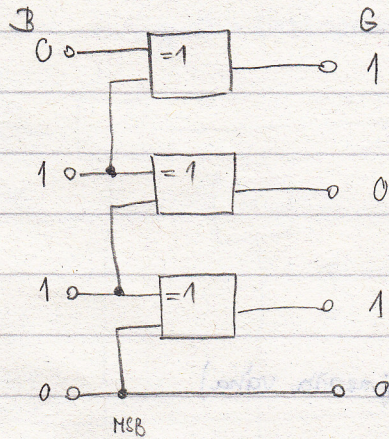 B G
0 =1 1
1 =1 0
1 =1 1
0 0
MSB